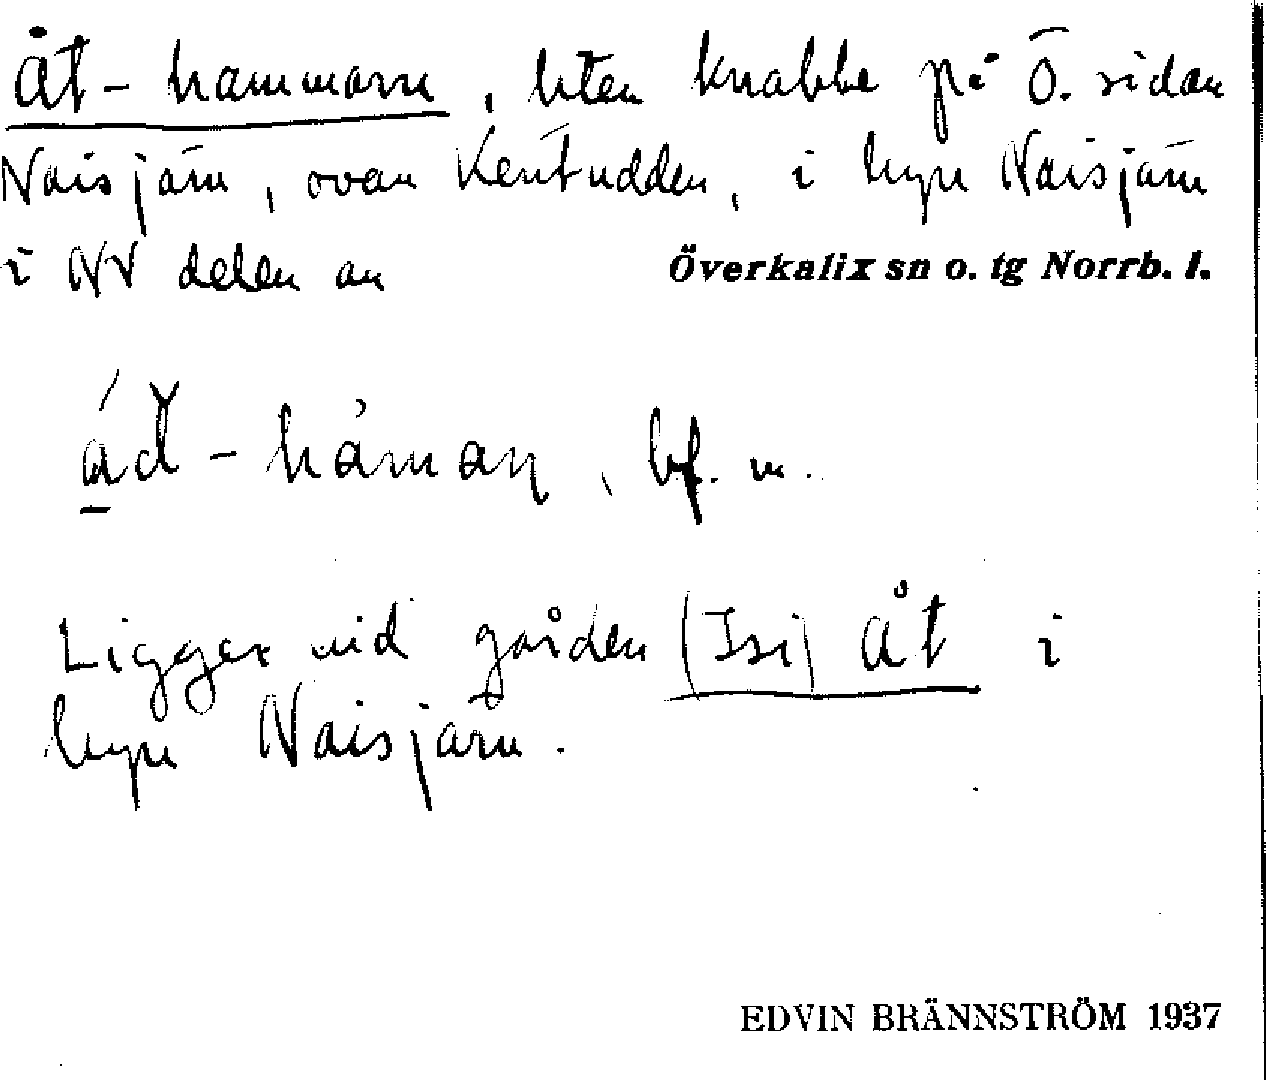 Åt-hammarn, liten knabbe på Ö. sidan
Naisjärv, ovan Kentudden, i byn Naisjärv
i NV delen av Överkalix sn o. tg Norrb. l.
ád-håman, bf. m.
Ligger vid gården (Isi) Åt i
byn Naisjärv.
EDVIN BRÄNNSTRÖM 1937